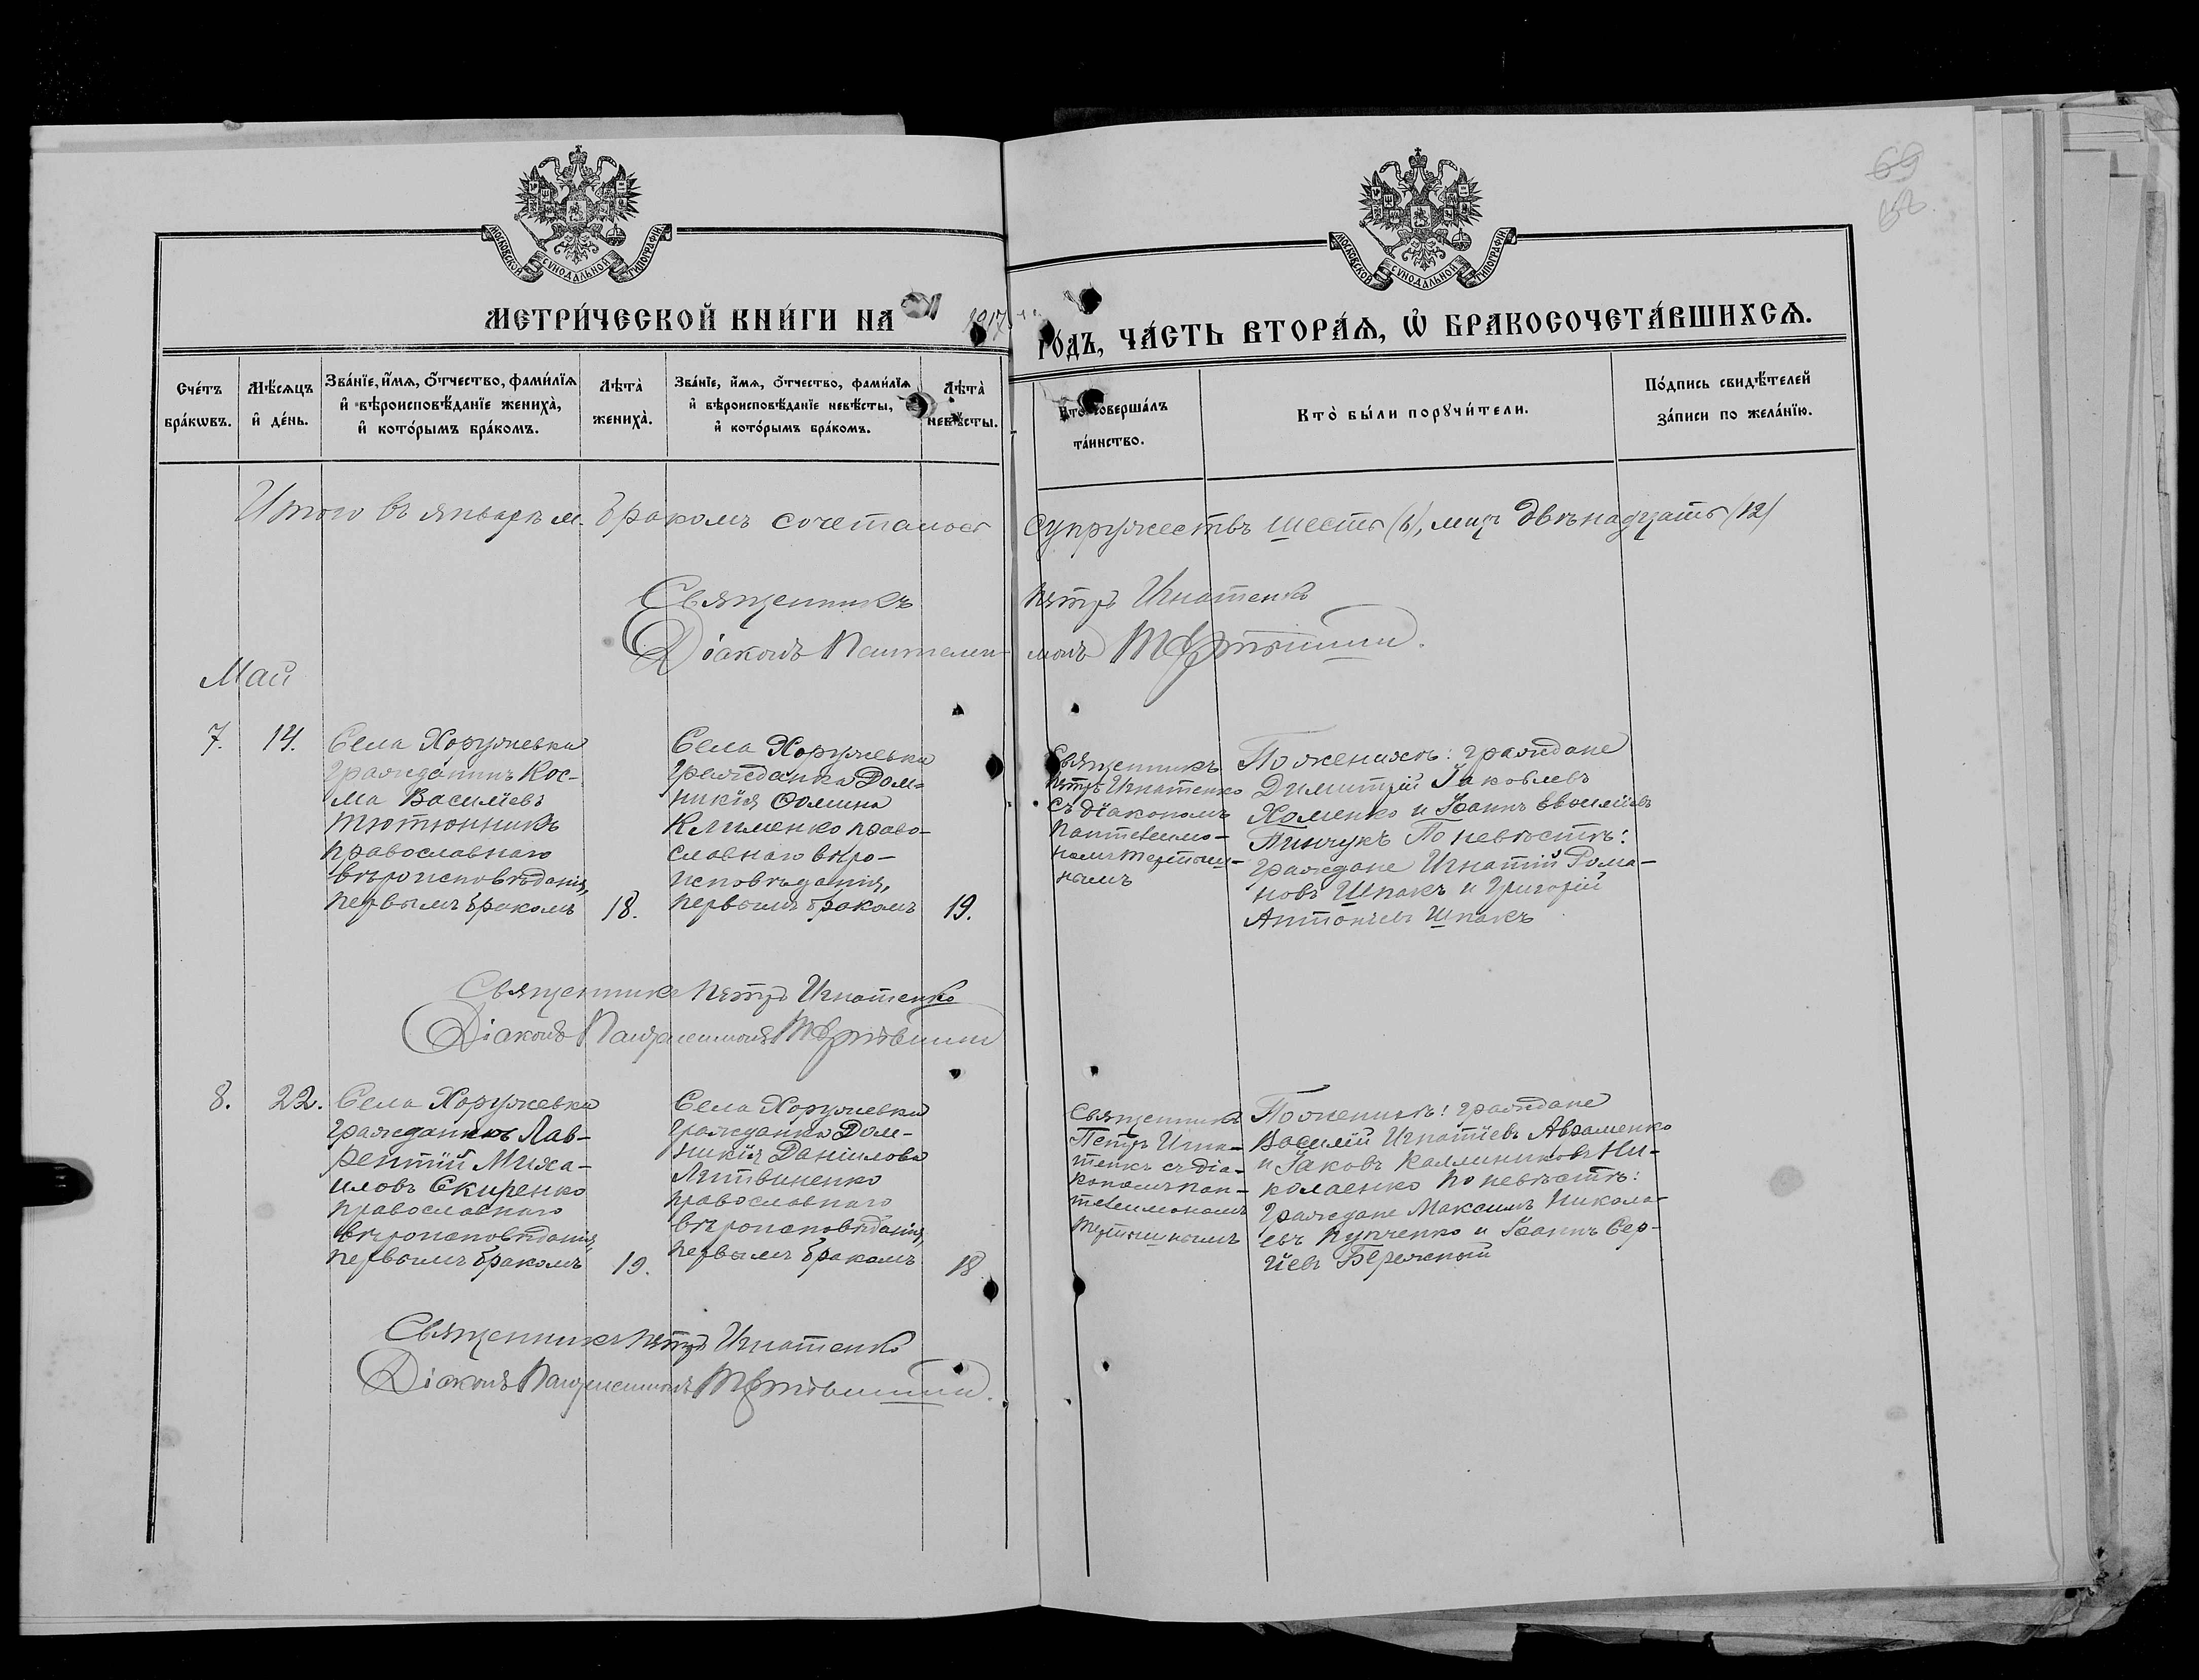 69
68.
МОСКОВСКОЙ СѴНОДАЛЬНОЙ ТИПОГРАФІИ
МОСКОВСКОЙ СѴНОДАЛЬНОЙ ТИПОГРАФІИ
МЕТРИ́ЧЕСКОЙ КНИ́ГИ НА 1917 ГО́ДЪ, ЧА́СТЬ ВТОРА́Ѧ, Ѡ҆ БРАКОСОЧЕТА́ВШИХСѦ.
Сче́тъ бра́кѡвъ.
Мѣ́сѧцъ и҆ де́нь.
Зва́нїе, и҆́мѧ, ѻ҆́тчество, фами́лїѧ
и҆ вѣроисповѣ́данїе жениха̀,
и҆ кото́рымъ бра́комъ.
Лѣ́та̀ жениха̀.
Зва́нїе, и҆́мѧ, ѻ҆́тчество, фами́лїѧ
и҆ вѣроисповѣ́данїе невѣ́сты,
и҆ кото́рымъ бра́комъ.
Лѣ́та̀ невѣ́сты.
Кто̀ соверша́лъ
та́инство.
Кто̀ бы́ли порꙋчи́тели.
По́дпись свидѣ́телей
за́писи по жела́нїю.
Итого въ январѣ м. бракомъ сочеталось супружествъ шесть (6), лицъ двѣнадцать (12)
Священникъ Петръ Игнатенко
Діаконъ Пантелеимонъ
Май
7. 14.
Села Хоружевки
гражданинъ Кос-
ма Василіевъ
Тютюнникъ
православнаго
вѣроисповѣданія,
первымъ бракомъ
18.
Села Хоружевки
гражданка Дом-
никія Ѳомина
Клименко право-
славнаго вѣро-
исповѣданія,
первымъ бракомъ
19.
Священникъ
Петръ Игнатенко
съ діакономъ
Пантелеимо-
номъ
По женихѣ: граждане
Димитрій Іаковлевъ
Хоменко и Іоаннъ Василіевъ
Пинчукъ По невѣстѣ:
граждане Игнатій Рома-
новъ Шпакъ и Григорій
Антоніевъ Шпакъ
Священникъ Петръ Игнатенко
Діаконъ Пантелеимонъ
8. 22.
Села Хоружевки
гражданинъ Лав-
рентій Миха-
иловъ Скиренко
православнаго
вѣроисповѣданія,
первымъ бракомъ
19.
Села Хоружевки
гражданка Дом-
никія Даніилова
Литвиненко
православнаго
вѣроисповѣданія,
первымъ бракомъ
18
Священникъ
Петръ Игна-
тенко съ діа-
кономъ Пан-
телеимономъ
По женихѣ: граждане
Василій Игнатіевъ Авраменко
и Іаковъ Каллиниковъ Ни-
колаенко По невѣстѣ:
граждане Максимъ Никола-
евъ Купченко и Іоаннъ Сер-
гіевъ Бережный
Священникъ Петръ Игнатенко
Діаконъ Пантелеимонъ